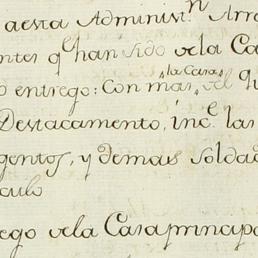 aesta Administ.n Arre
ntes q.e han sido de la Ca
la Casa
o entrego: Con mas, del qu
Destacamento, inc.e las
gentos, y demas Soldad
culo
ego de la Casa principa